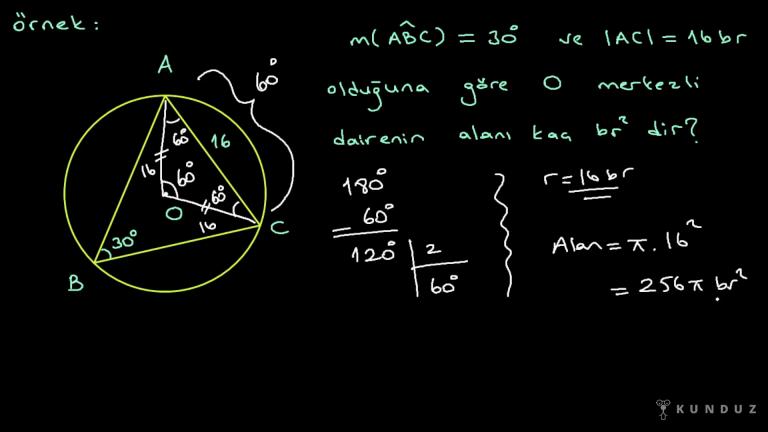 örnek:
m(ABC) = 30° ve |AC| = 16 br
olduğuna göre O merkezli
dairenin alanı kaç br² dir?
A
60°
60°
16
16
60°
60°
O
16
C
30°
B
180°
- 60°
120° | 2
60°
r = 16 br
Alan = π . 16²
= 256π br²
KUNDUZ